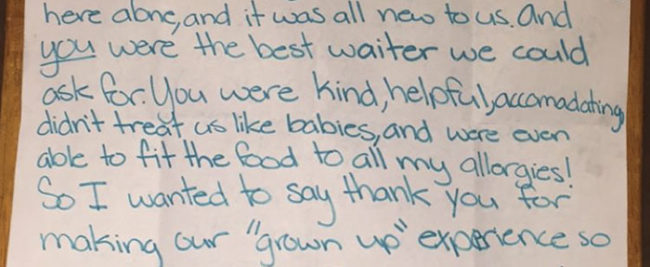 here alone, and it was all new to us. And
you were the best waiter we could
ask for. You were kind, helpful, accomadating,
didn't treat us like babies, and were even
able to fit the food to all my allergies!
So I wanted to say thank you for
making our "grown up" experience so